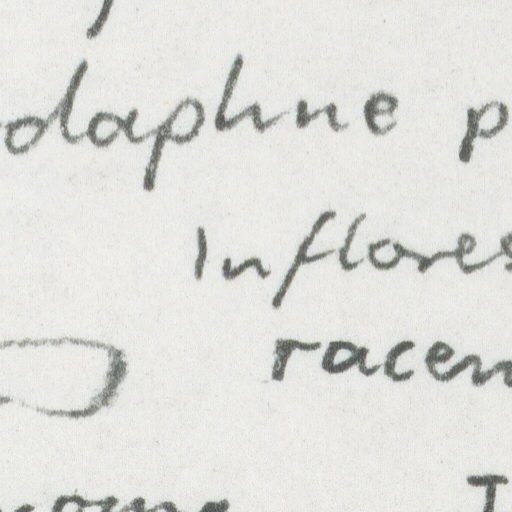 daphne p
Inflores
racem